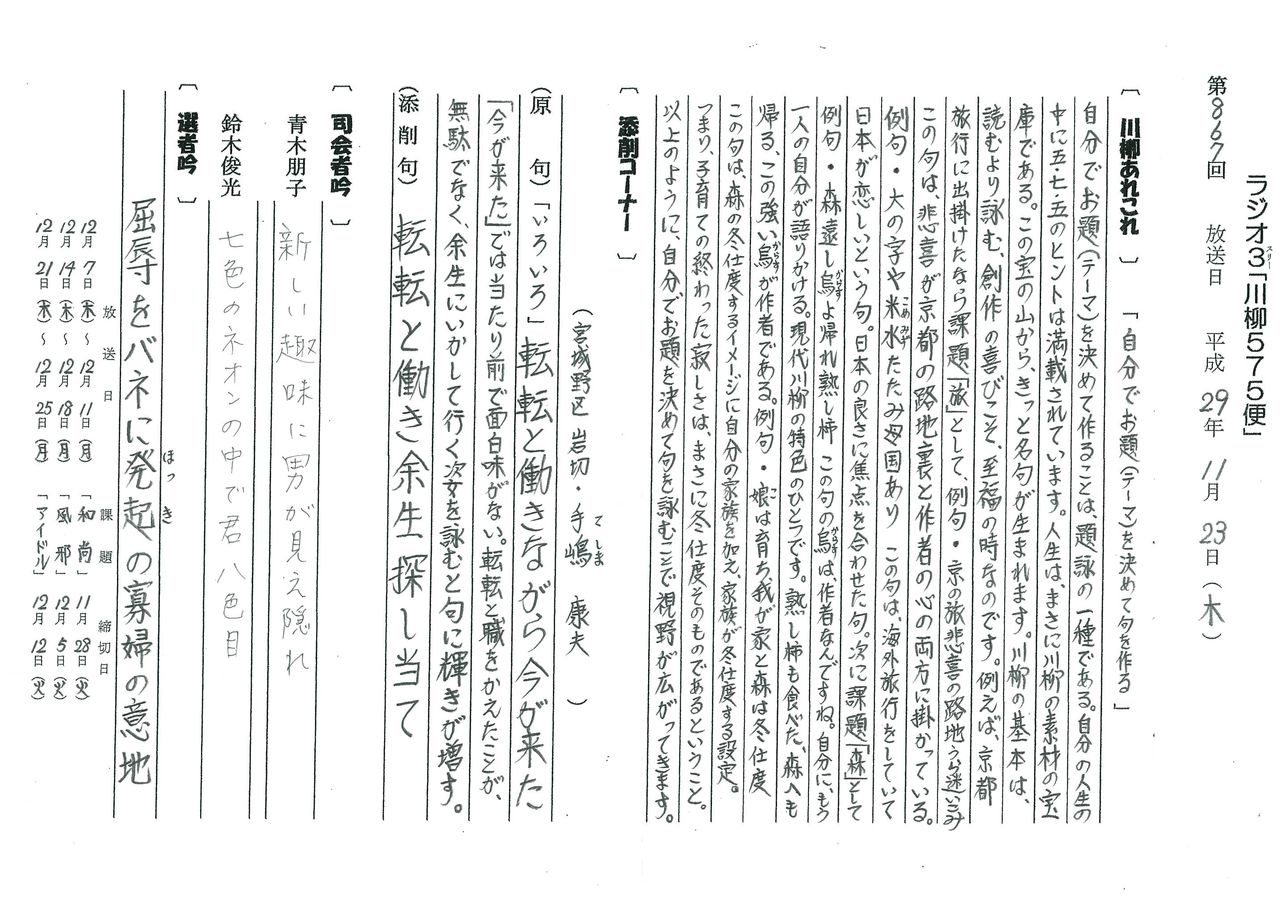 ラジオ3「川柳575便」
第867回　放送日　平成29年11月23日（木）
〔川柳あれこれ〕「自分でお題(テーマ)を決めて句を作る」
自分でお題(テーマ)を決めて作ることは、題詠の一種である。自分の人生の
中に五・七・五のヒントは満載されています。人生は、まさに川柳の素材の宝
庫である。この宝の山から、きっと名句が生まれます。川柳の基本は、
読むより詠む、創作の喜びこそ、至福の時なのです。例えば、京都
旅行に出掛けたなら課題「旅」として、例句・京の旅悲喜の路地うら迷いこみ
この句は、悲喜が京都の路地裏と作者の心の両方に掛かっている。
例句・大の字や米水たたみ母国あり　この句は、海外旅行をしていて
日本が恋しいという句。日本の良さに焦点を合わせた句。次に課題「森」として
例句・森遠し烏よ帰れ熟し柿　この句の烏は、作者なんですね。自分に、もう
一人の自分が語りかける。現代川柳の特色のひとつです。熟し柿も食べた、森へも
帰る、この強い烏が作者である。例句・娘は育ち我が家と森は冬仕度
この句は、森の冬仕度するイメージに自分の家族を加え、家族が冬仕度する設定。
つまり、子育ての終わった寂しさは、まさに冬仕度そのものであるということ。
以上のように、自分でお題を決めて句を詠むことで視野が広がってきます。
〔添削コーナー〕
（宮城野区岩切・手嶋　康夫　）
（原　句）「いろいろ」転転と働きながら今が来た
「今が来た」では当たり前で面白味がない。転転と職をかえたことが、
無駄でなく、余生にいかして行く次女を詠むと句に輝きが増す。
（添削句）　転転と働き余生探し当て
〔司会者吟〕
青木朋子　新しい趣味に男が見え隠れ
鈴木俊光　七色のネオンの中で君八色目
〔選者吟〕
屈辱をバネに発起の寡婦の意地
放送日　課題　締切日
12月7日（木）～12月11日（月）「和尚」11月28日（火）
12月14日（木）～12月18日（月）「風邪」12月5日（火）
12月21日（木）～12月25日（月）「アイドル」12月12日（火）